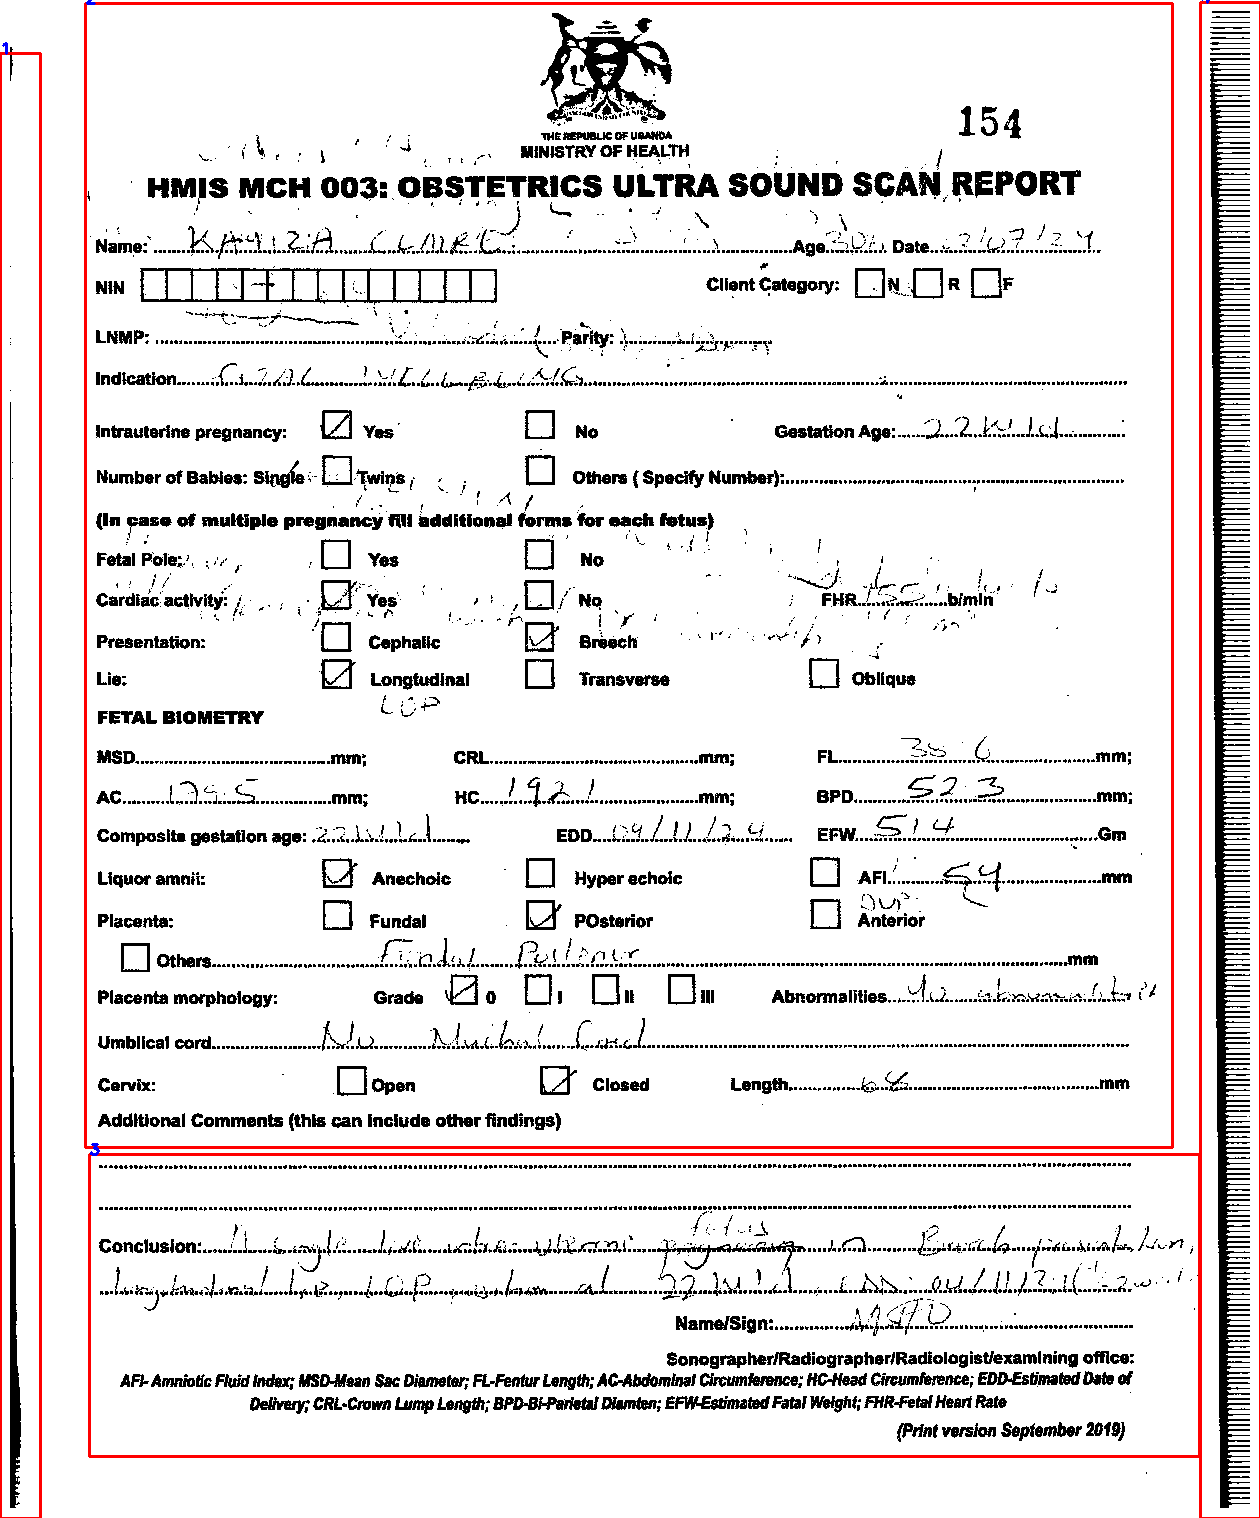 154
THE REPUBLIC OF UGANDA
MINISTRY OF HEALTH
HMIS MCH 003: OBSTETRICS ULTRA SOUND SCAN REPORT
Name: KAYIZA CLAIRE Age 30 Date /07/24
NIN Client Category: N R F
LNMP: Parity:
Indication FETAL WELLBEING
Intrauterine pregnancy: Yes No Gestation Age: 22W1d
Number of Babies: Single Twins Others ( Specify Number):
(In case of multiple pregnancy fill additional forms for each fetus)
Fetal Pole: Yes No
Cardiac activity: Yes No FHR 155 b/min
Presentation: Cephalic Breech
Lie: Longtudinal Transverse Oblique
LOP
FETAL BIOMETRY
MSD mm; CRL mm; FL 38.6 mm;
AC 179.5 mm; HC 192.1 mm; BPD 52.3 mm;
Composite gestation age: 22W1d EDD 09/11/24 EFW 514 Gm
Liquor amnii: Anechoic Hyper echoic AFI 54 mm
DVP
Placenta: Fundal POsterior Anterior
Others Fundal Posterior mm
Placenta morphology: Grade 0 I II III Abnormalities No abnormalities
Umblical cord No Nuchal Cord
Cervix: Open Closed Length 68 mm
Additional Comments (this can include other findings)
fetus
Conclusion: A single live intra uterine pregnancy in Breech presentation,
longitudinal lie, LOP position at 22W1d, EDD:
Name/Sign:
Sonographer/Radiographer/Radiologist/examining office:
AFI- Amniotic Fluid Index; MSD-Mean Sac Diameter; FL-Femur Length; AC-Abdominal Circumference; HC-Head Circumference; EDD-Estimated Date of
Delivery; CRL-Crown Lump Length; BPD-Bi-Parietal Diamten; EFW-Estimated Fatal Weight; FHR-Fetal Heart Rate
(Print version September 2019)